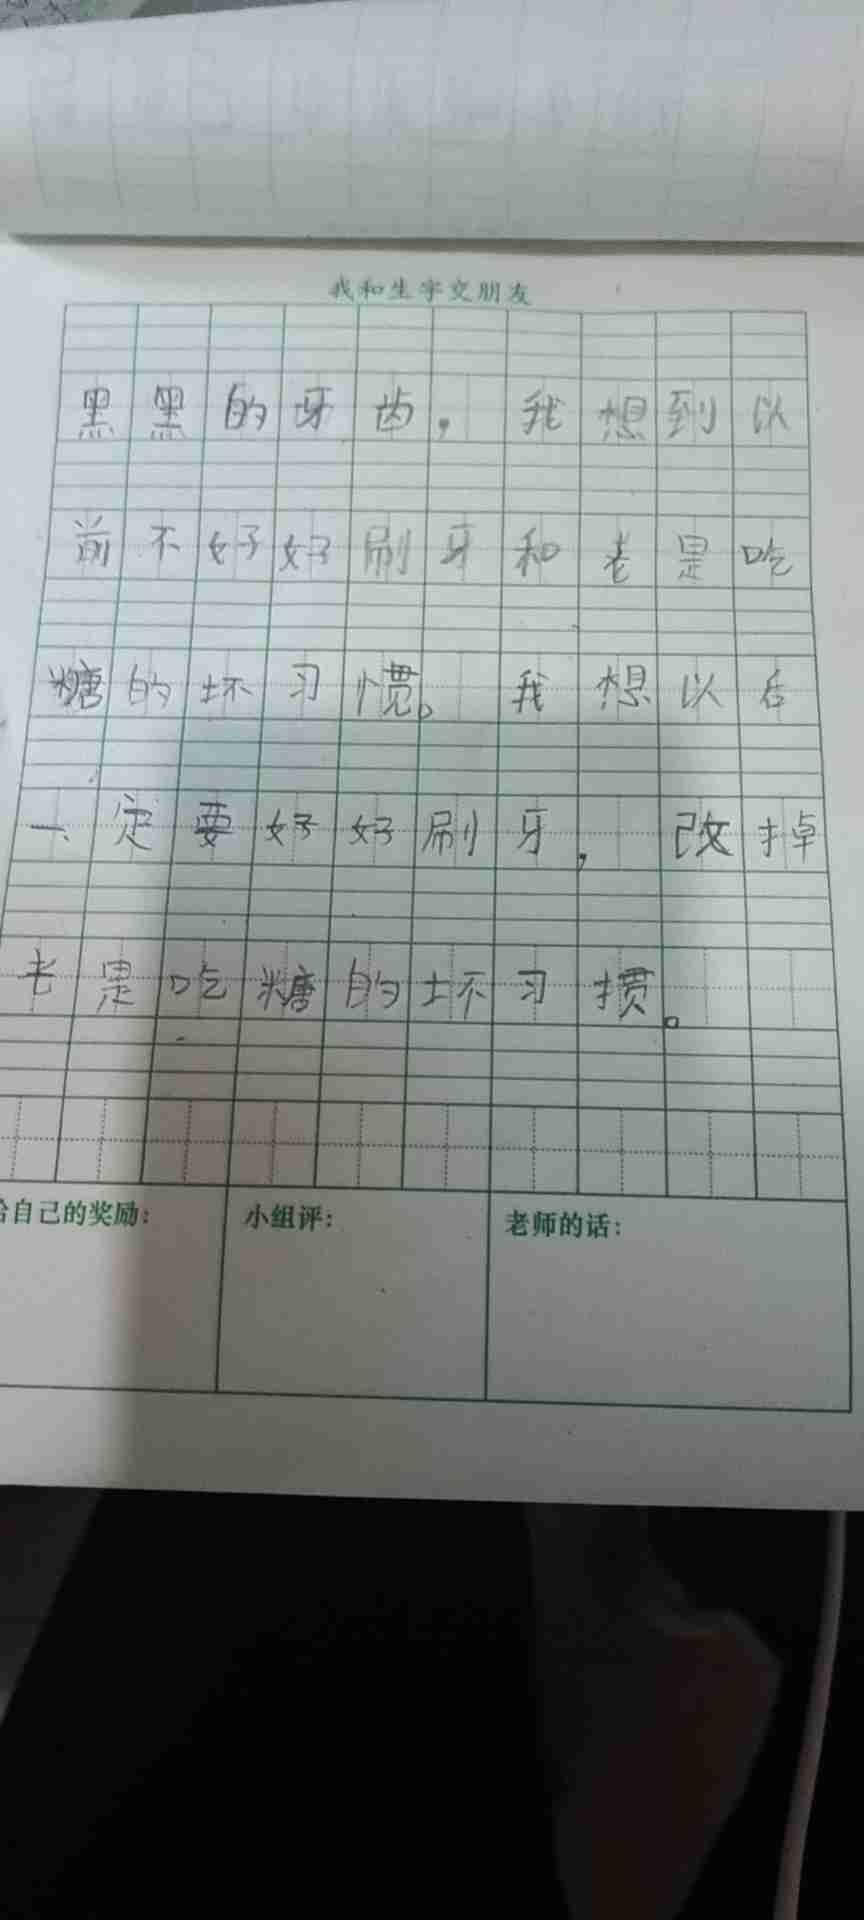 我和生字交朋友
黑黑的牙齿，我想到以
前不好好刷牙和老是吃
糖的坏习惯。我想以后
一定要好好刷牙，改掉
老是吃糖的坏习惯。
给自己的奖励：
小组评：
老师的话：